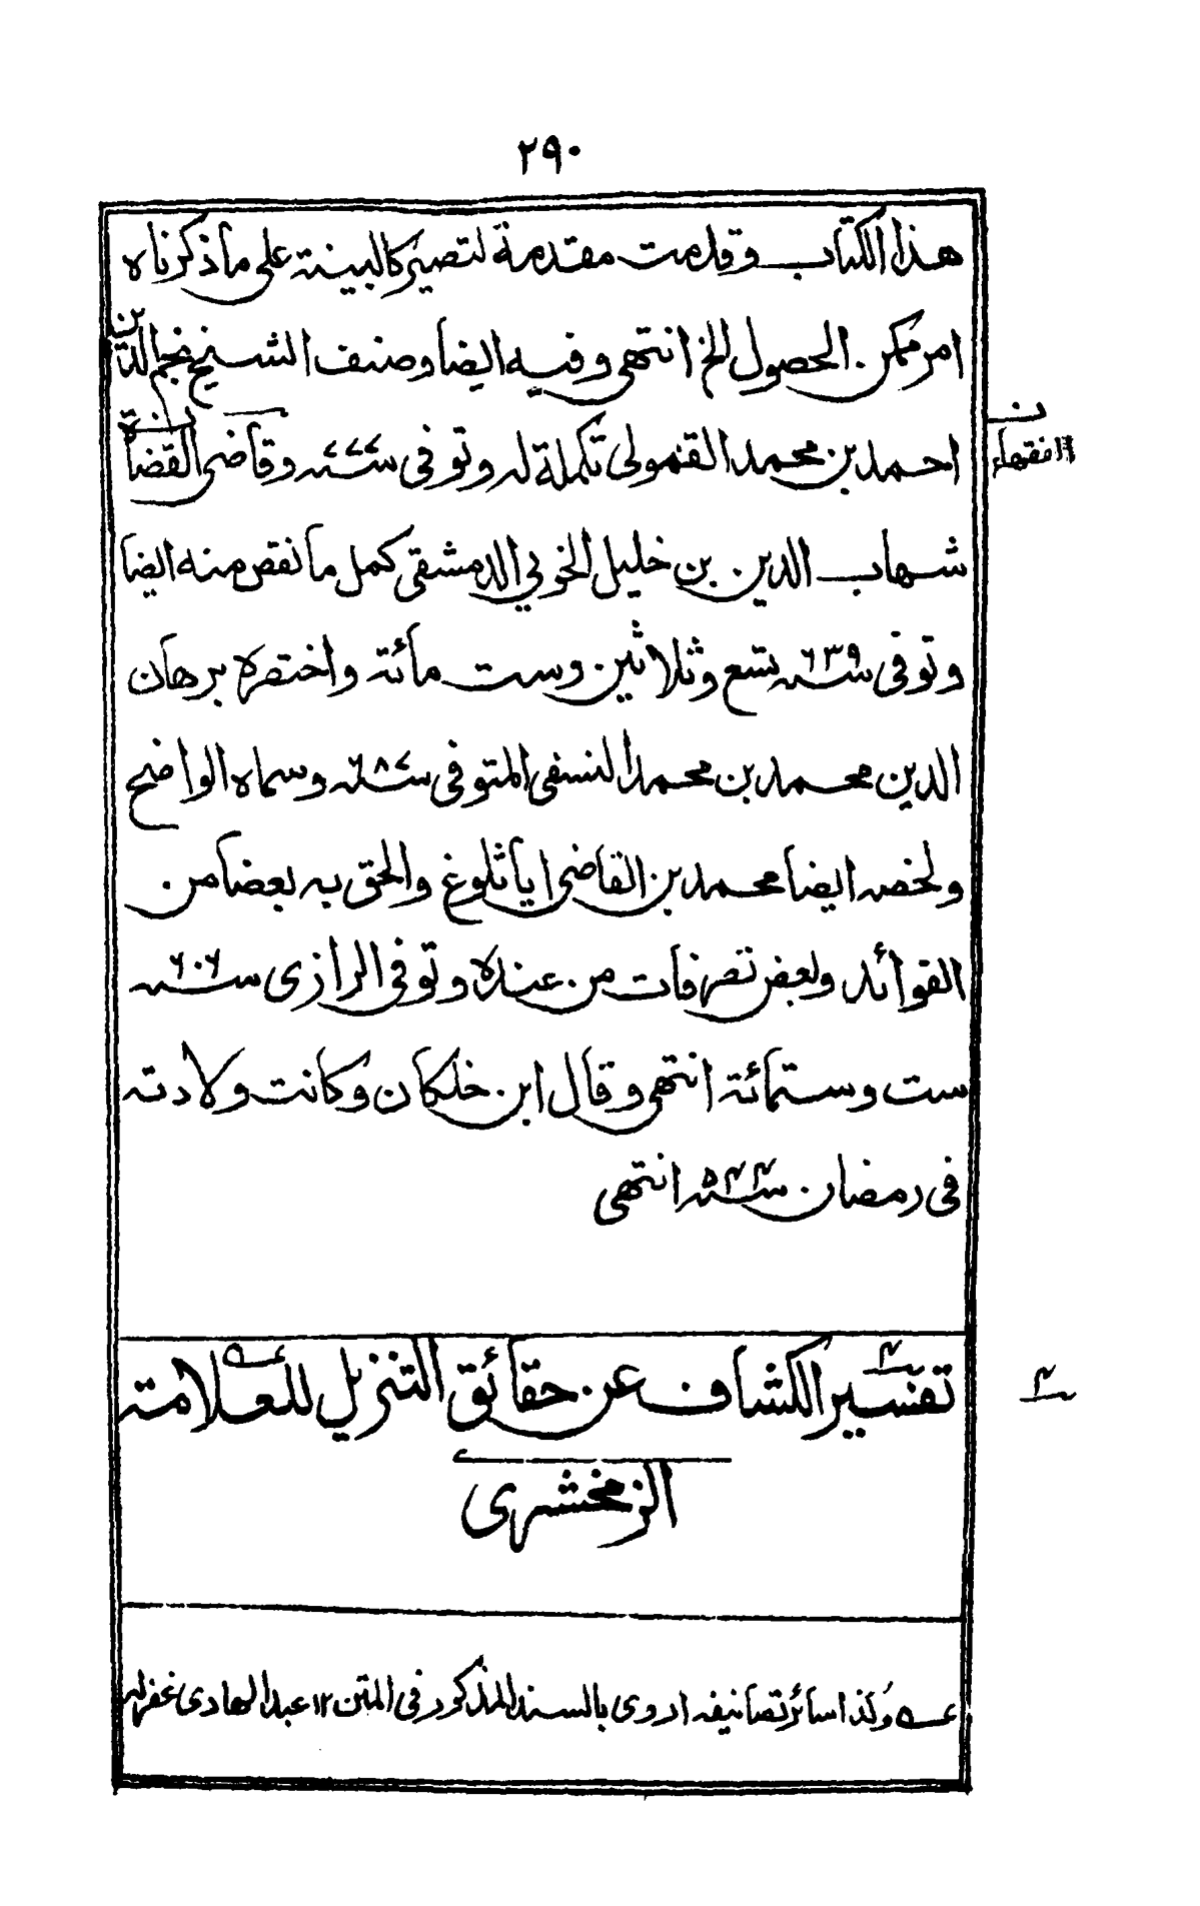 ٢٩٠
هذا الكتاب وقدمت مقدمة لتصير كالبينة على ما ذكرناه
امر ممكن الحصول الخ انتهى وفيه ايضا وصنف الشيخ نجم الدين
احمد بن محمد القمولى تكملة له وتوفى سنة ٧٧٧ وقاضى القضاة
شهاب الدين بن خليل الخوبي الدمشقى كمل ما نقص منه ايضا
وتوفى سنة ٦٣٩ تسع وثلاثين وست مائة واختصره برهان
الدين محمد بن محمد النسفى المتوفى سنة ٦٨٧ وسماه الواضح
ولخصه ايضا محمد بن القاضى اياثلوغ والحق به بعضا من
الفوائد وبعض تصرفات من عنده وتوفى الرازى سنة ٦٠٦
ست وستمائة انتهى وقال ابن خلكان وكانت ولادته
فى رمضان سنة ٥٤٤ انتهى
تفسير الكشاف عن حقائق التنزيل للعلامة
الزمخشرى
وكذا سائر تصانيفه اروى بالسند المذكور فى المتن ١٢ عبد الهادى غفر له